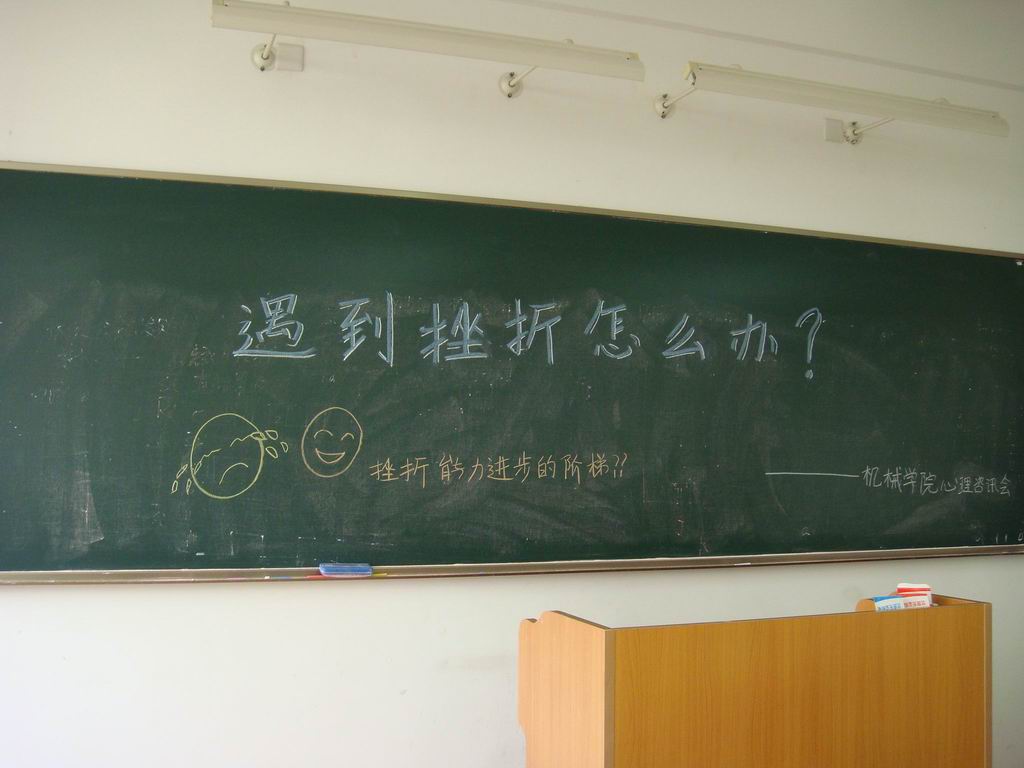 遇到挫折怎么办?
挫折 能力进步的阶梯??
——机械学院心理咨讯会